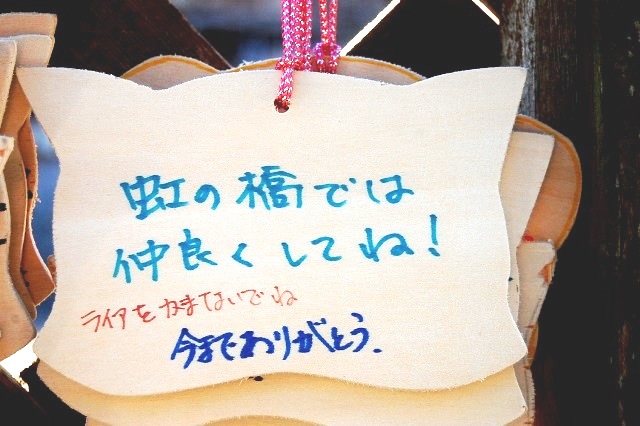 虹の橋では
仲良くしてね!
ライアをかまないでね
今までありがとう.